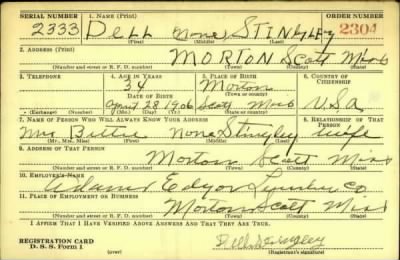 SERIAL NUMBER 1. NAME (Print) ORDER NUMBER
2333 DELL None STINGLEY 2304
(First) (Middle) (Last)
2. ADDRESS (Print)
MORTON Scott Miss
(Number and street or R. F. D. number) (Town) (County) (State)
3. TELEPHONE 4. AGE IN YEARS 5. PLACE OF BIRTH 6. COUNTRY OF CITIZENSHIP
34 Morton
DATE OF BIRTH (Town or county)
April 28 1906 Scott Miss USA
(Exchange) (Number) (Mo.) (Day) (Yr.) (State or country)
7. NAME OF PERSON WHO WILL ALWAYS KNOW YOUR ADDRESS 8. RELATIONSHIP OF THAT PERSON
Mrs None Stingley wife
(Mr., Mrs., Miss) (First) (Middle) (Last)
9. ADDRESS OF THAT PERSON
Morton Scott Miss
(Number and street or R. F. D. number) (Town) (County) (State)
10. EMPLOYER'S NAME
Adams Edgar Lumber Co
11. PLACE OF EMPLOYMENT OR BUSINESS
Morton Scott Miss
(Number and street or R. F. D. number) (Town) (County) (State)
I AFFIRM THAT I HAVE VERIFIED ABOVE ANSWERS AND THAT THEY ARE TRUE.
REGISTRATION CARD
D. S. S. Form 1 (over) Dell Stingley
(Registrant's signature)